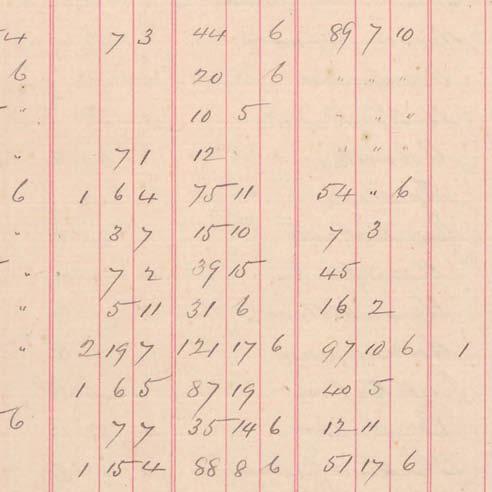 4 7 3 44 6 89 7 10
6 20 6 " " "
" 10 5 " " "
" 7 1 12 " " "
6 1 6 4 75 11 54 " 6
" 3 7 15 10 7 3
" 7 2 39 15 45
" 5 11 31 6 16 2
" 2 19 7 121 17 6 97 10 6 1
1 6 5 87 19 40 5
6 7 7 35 14 6 12 11
1 15 4 88 8 6 51 17 6